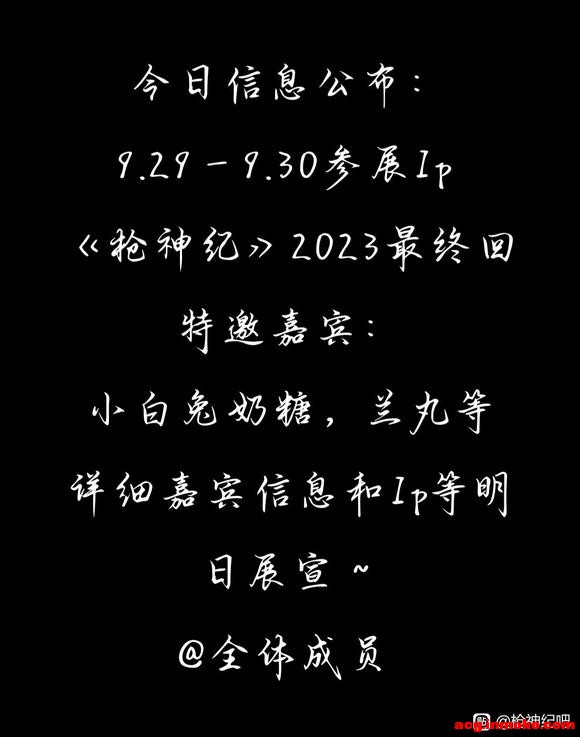 今日信息公布：
9.29－9.30参展Ip
《枪神纪》2023最终回
特邀嘉宾：
小白兔奶糖，兰丸等
详细嘉宾信息和Ip等明
日展宣～
@全体成员
@枪神纪吧